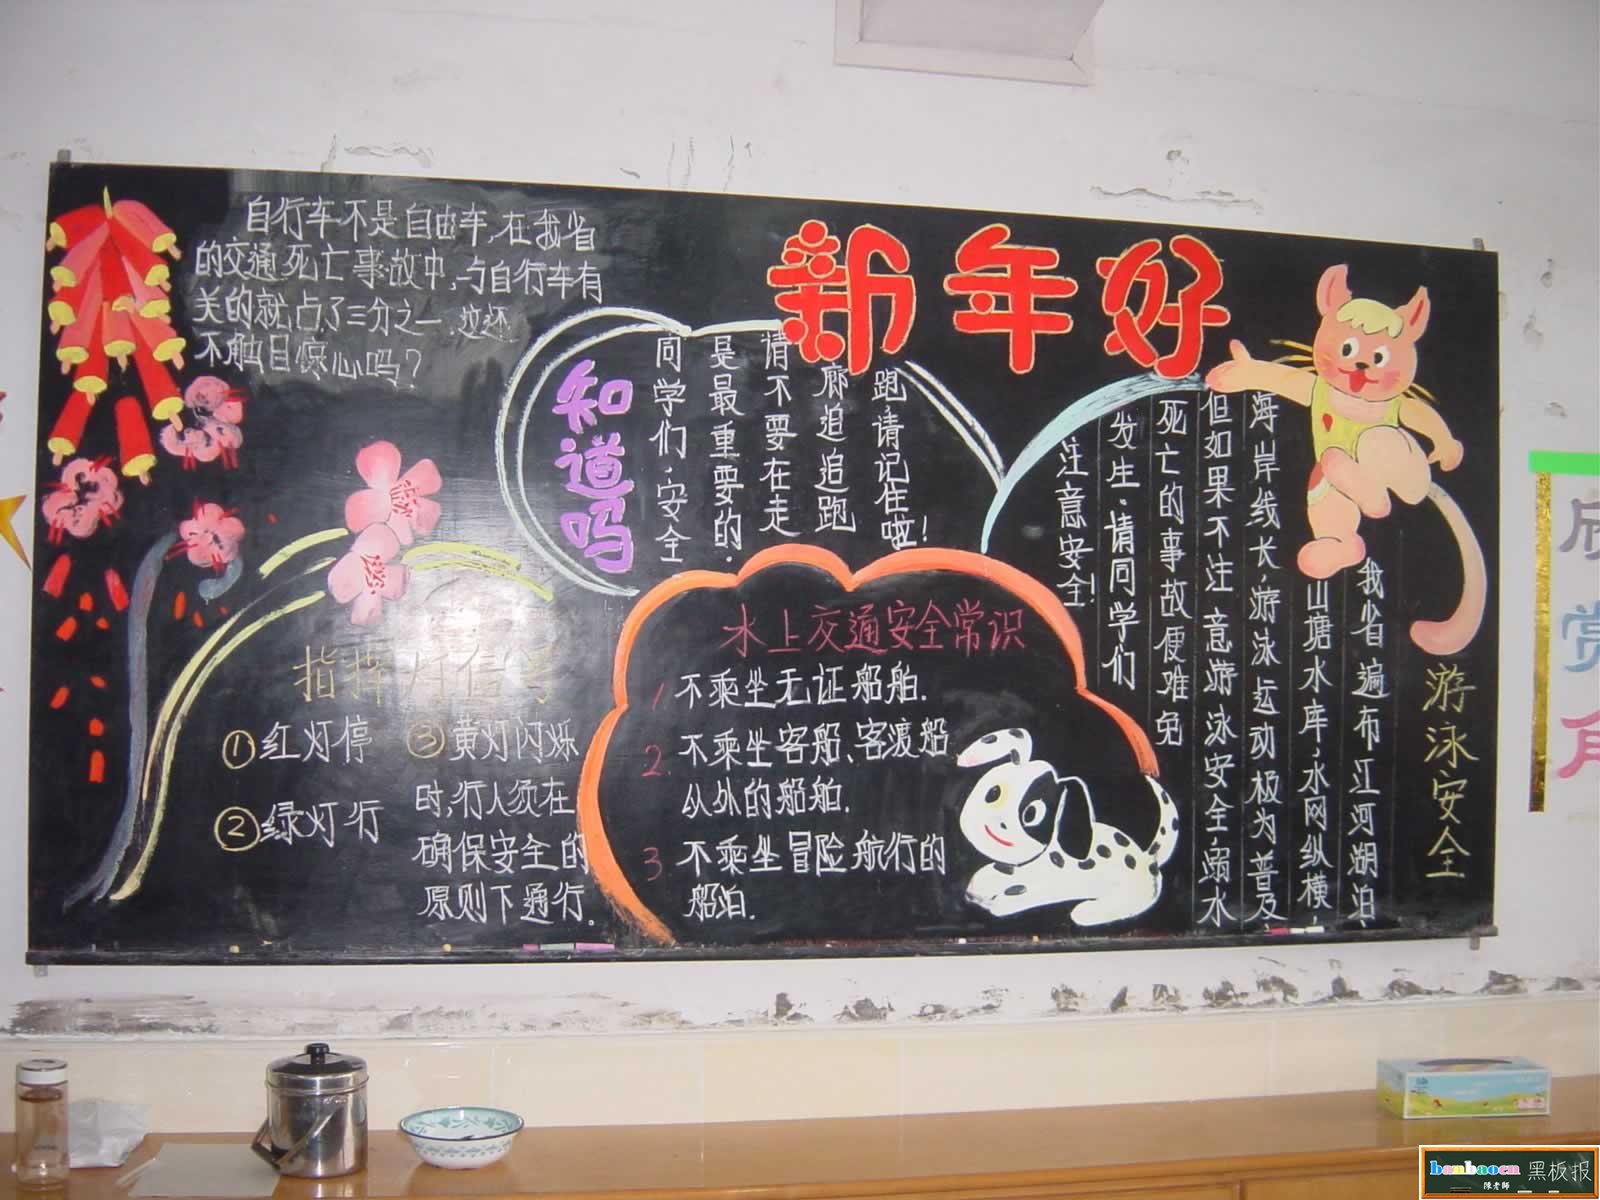 新年好
自行车不是自由车,在我省
的交通死亡事故中,与自行车有
关的就占了三分之一,这还
不触目惊心吗?
知道吗
同学们,安全
是最重要的.
请不要在走
廊追追跑
跑请记住啦!
游泳安全
我省遍布江河湖泊,
山塘水库,水网纵横,
海岸线长,游泳运动极为普及,
但如果不注意游泳安全,溺水
死亡的事故便难免
发生.请同学们
注意安全!
指挥灯信号
①红灯停
②绿灯行
③黄灯闪烁
时,行人须在
确保安全的
原则下通行。
水上交通安全常识
1 不乘坐无证船舶.
2. 不乘坐客船、客渡船
以外的船舶.
3 不乘坐冒险航行的
船泊.
欣赏角
banbaocn 黑板报
陳老師